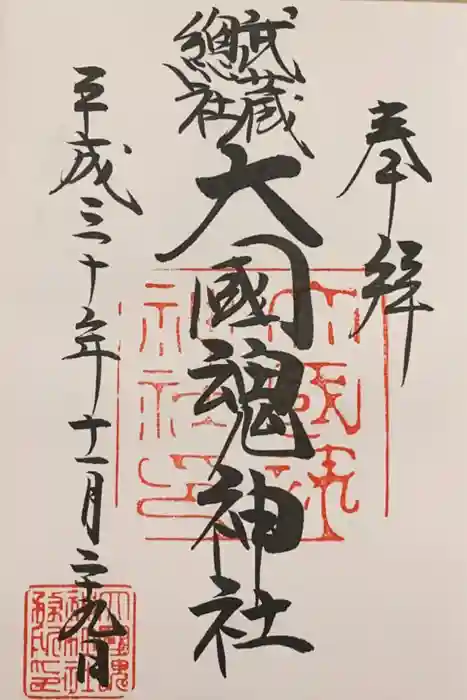 奉拝
武蔵
總社
大國魂神社
平成三十年十一月二十九日